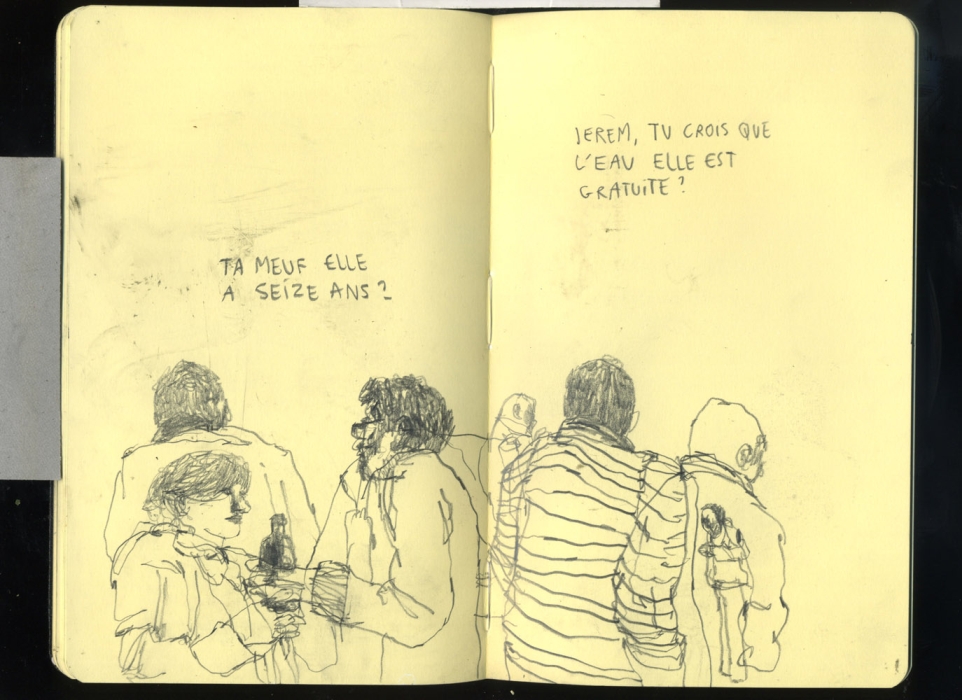 TA MEUF ELLE
A SEIZE ANS?
JEREM, TU CROIS QUE
L'EAU ELLE EST
GRATUITE?